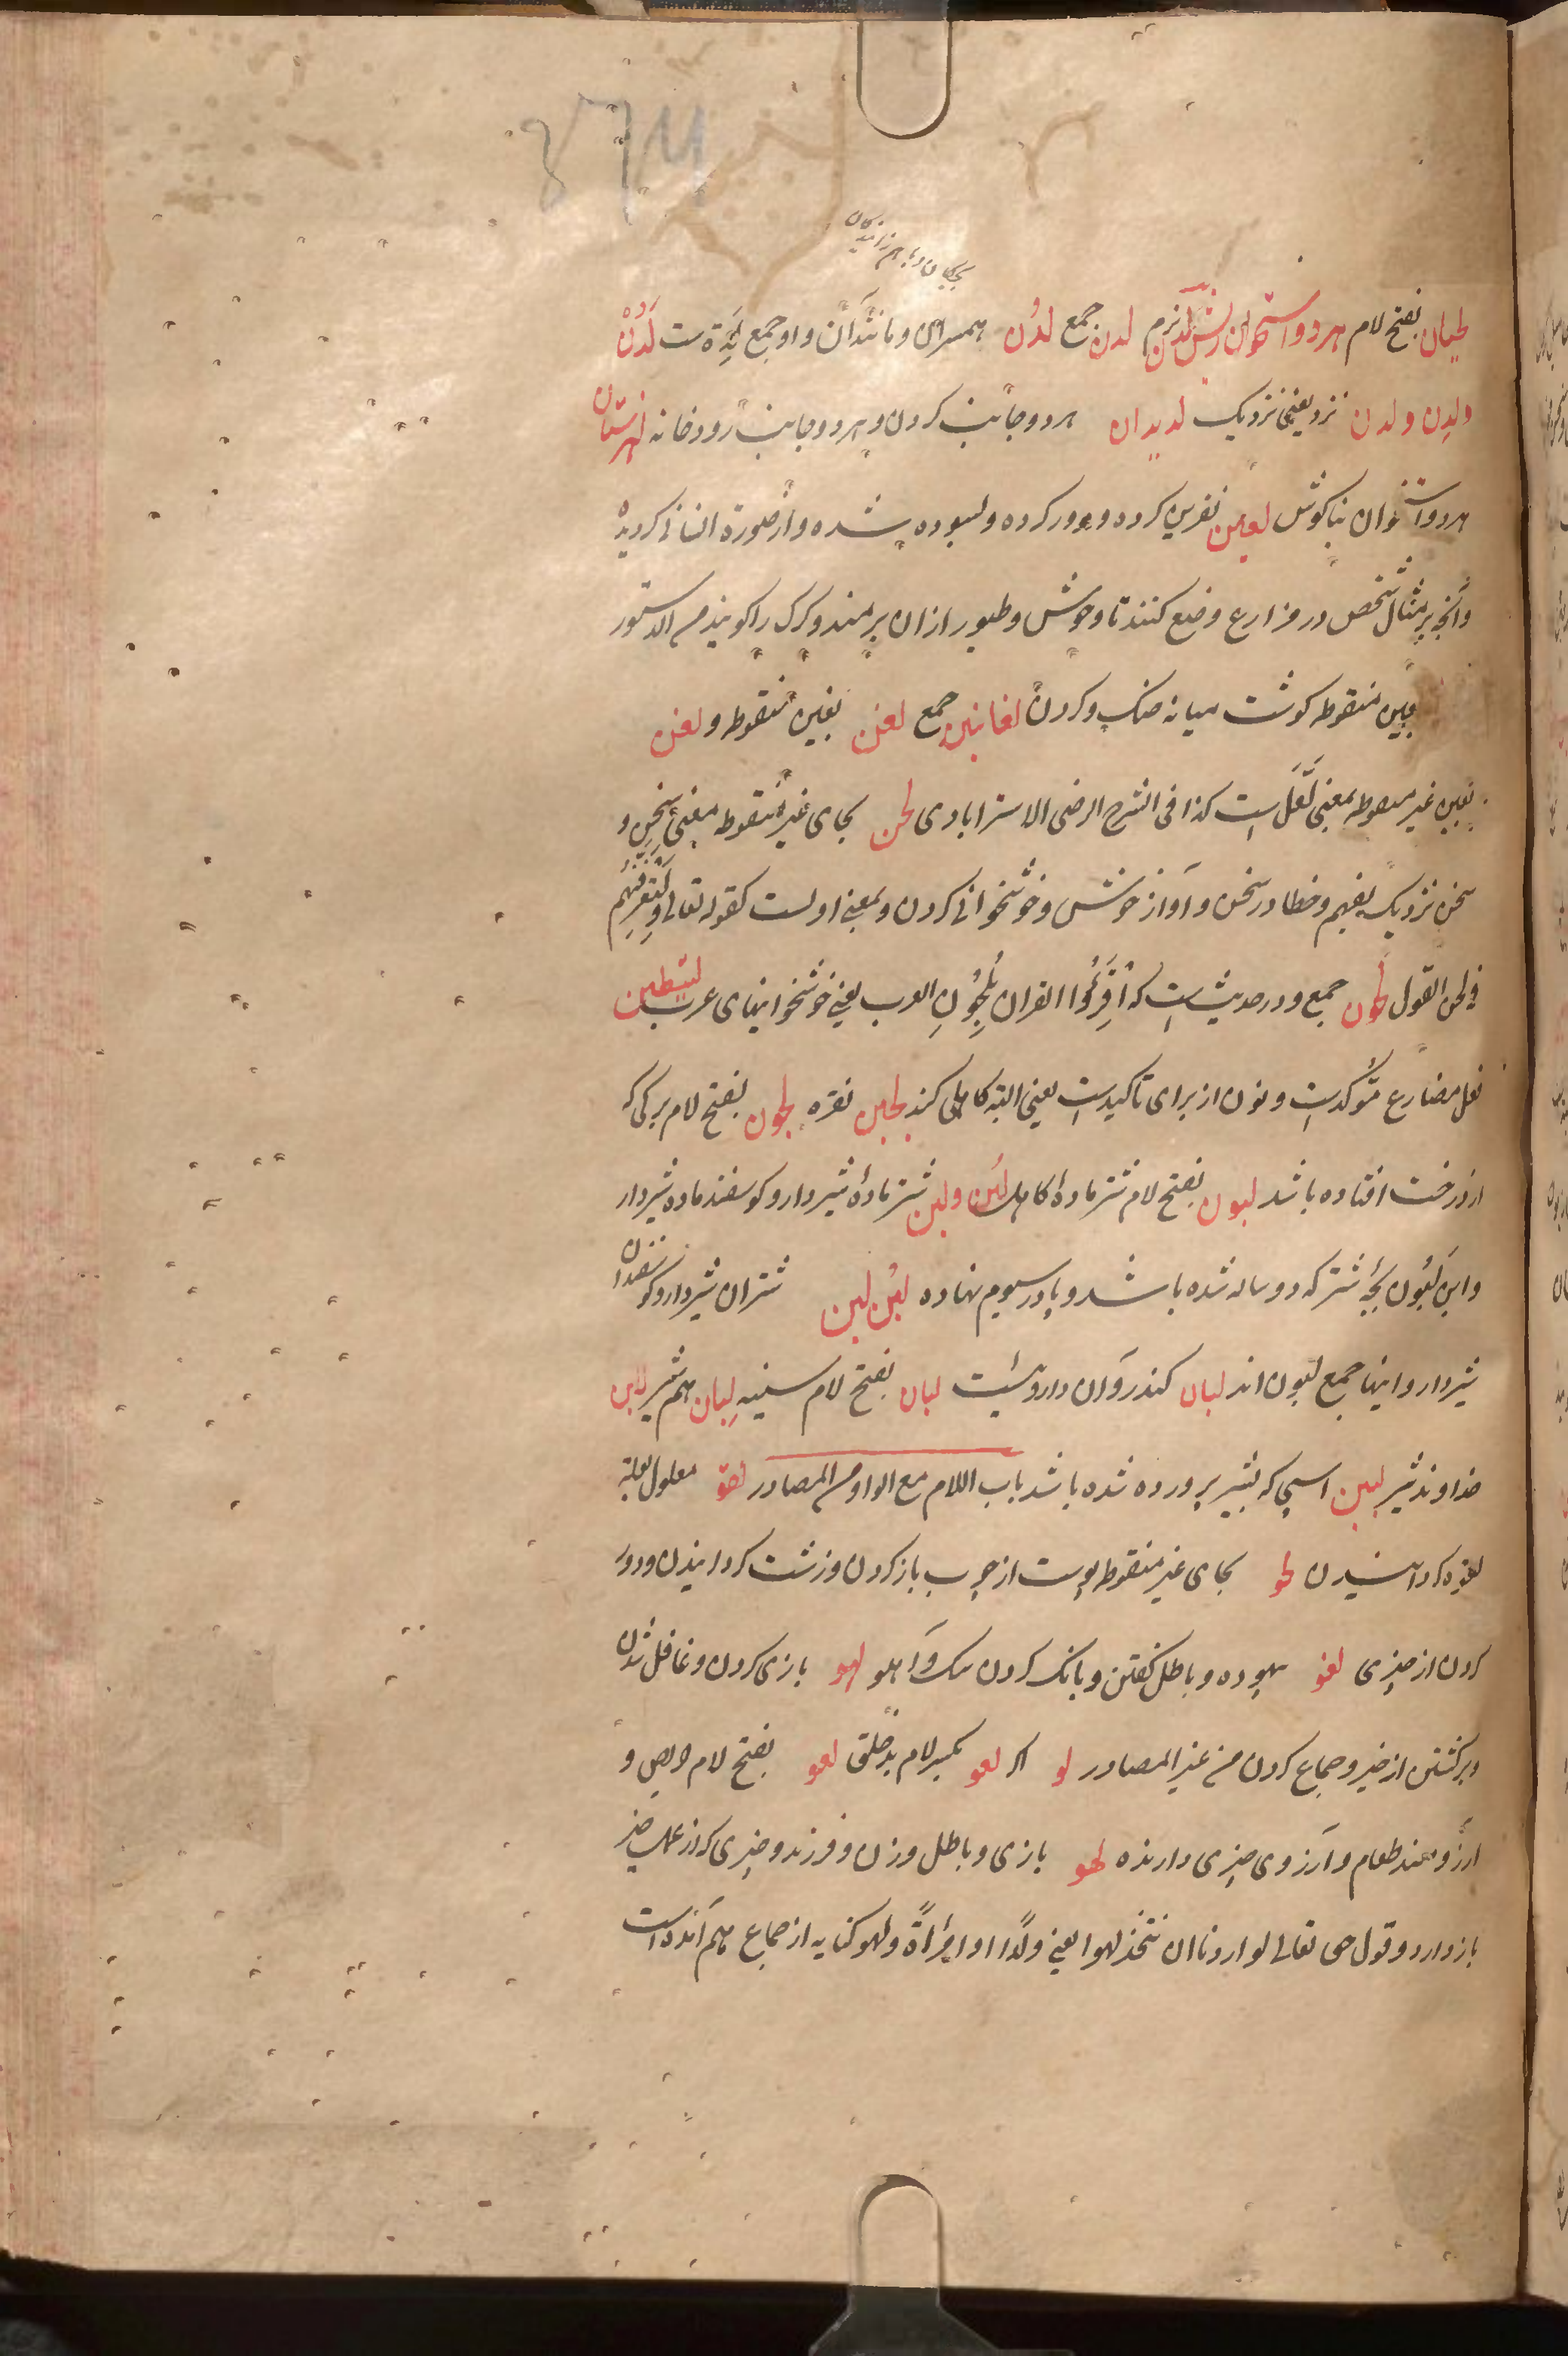 لحیان بفتح لام هر دو استخوان ریش لدن نرم لدن جمع لدون همسران و مانند آن و او جمع لِدَة ست لَدُنْ
ولدن ولدن نزد یعنی نزدیک لدیدان هر دو جانب کردن و هر دو جانب رودخانه لهزمتان
هر دو استخوان بناکوش لعین نفرین کرده و دور کرده و شده و از صورة انسانی کردیده
و آنچه بر مثال شخص در مزارع وضع کنند تا وحوش و طیور ازان برمند و کرک را کویند من الدستور
بغین منقوطه کوشت میانه حنک و کردن لغانین جمع لغن بغین منقوطه و لعن
بعین غیر منقوطه بمعنی لَعَلّ است کذا فی الشرح الرضی الاسترابادی لحن بحای غیر منقوطه معنی سخن و
سخن نزدیک بفهم و خطا در سخن و آواز خوش و خوشخوانی کردن و بمعنی اولست کقوله تعالی وَلَتَعْرِفَنَّهُم
فی لحن القول لحون جمع و در حدیث است که اُقرَءُوا القران بِلُحُونِ العرب یعنی خوشخوانیهای عرب لیبطین
فعل مضارع مؤکدست و نون از برای تاکیدست یعنی البته کاهلی کند لجین نقره لجون بفتح لام برکی که
از درخت افتاده باشد لبون بفتح لام شتر مادهٔ کاهل لبن ولبن شتر مادهٔ شیردار و کوسفند ماده شیردار
وابن لَبُون بچهٔ شتر که دو ساله شده باشد و پا در سیوم نهاده لبن لبن شتران شیردار و کوسفندان
شیردار و اینها جمع لبون اند لبان کندر و آن داروئیست لبان بفتح لام سینه لِبان هم شیر لابن
خداوند شیر لبین اسپی که بشیر پرورده شده باشد باب اللام مع الواو من المصادر لقو معلول بعلة
لقوه کردانیدن لحو بحای غیر منقوطه پوست از چوب باز کردن و زشت کردانیدن و دور
کردن از چیزی لغو بیهوده و باطل کفتن و بانک کردن سک و آهو لهو بازی کردن و غافل شدن
و برکشتن از خیر و جماع کردن من غیر المصادر لو اکر لعو بکسر لام بدخلق لعو بفتح لام حریص و
آرزومند طعام و آرزوی چیزی دارنده لهو بازی و باطل و زن و فرزند و چیزی که از عمل خیر
باز دارد و قول حق تعالی لو اردنا ان نتخذ لهوا یعنی ولدًا او امرأةً و لهو کنایه از جماع هم آمده است